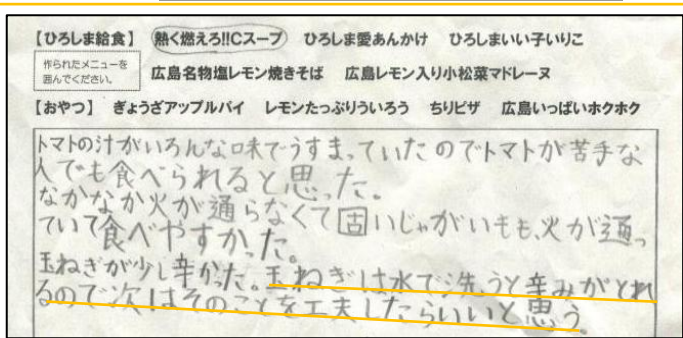 【ひろしま給食】 熱く燃えろ!!Cスープ ひろしま愛あんかけ ひろしまいい子いりこ
作られたメニューを
囲んでください。
広島名物塩レモン焼きそば 広島レモン入り小松菜マドレーヌ
【おやつ】 ぎょうざアップルパイ レモンたっぷりういろう ちりピザ 広島いっぱいホクホク
トマトの汁がいろんな味でうすまっていたのでトマトが苦手な
人でも食べられると思った。
なかなか火が通らなくて固いじゃがいもも、火が通っ
ていて食べやすかった。
玉ねぎが少し辛かった。玉ねぎは水で洗うと辛みがとれ
るので次はそのことを工夫したらいいと思う。